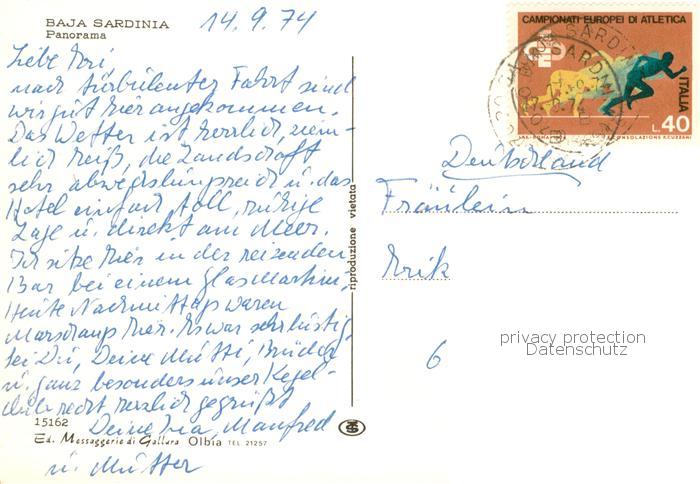 BAJA SARDINIA
Panorama
14.9.74
Liebe
nach turbulenter Fahrt sind
wir gut hier angekommen.
Das Wetter ist herrlich, ziem-
lich heiß, die Landschaft
sehr abwechslungsreich u. das
Hotel einfach toll, ruhige
Lage u. direkt am Meer.
Ich sitze hier in der reizenden
Bar bei einem Glas Martini,
Heute Nachmittag waren
hier. Es war sehr lustig
sei Du, Deine Mutti, Brüder
u. ganz besonders unser Kegel-
club recht herzlich gegrüßt
Deine Manfred
u. Mutter
15162
Ed. Messaggerie di Gallura Olbia TEL 21257
riproduzione vietata
CAMPIONATI EUROPEI DI ATLETICA
ITALIA
L.40
Deutschland
Fräulein
Erik
6
privacy protection
Datenschutz